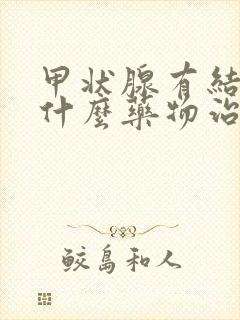 甲状腺有結
什麼藥物治
鮫島和人